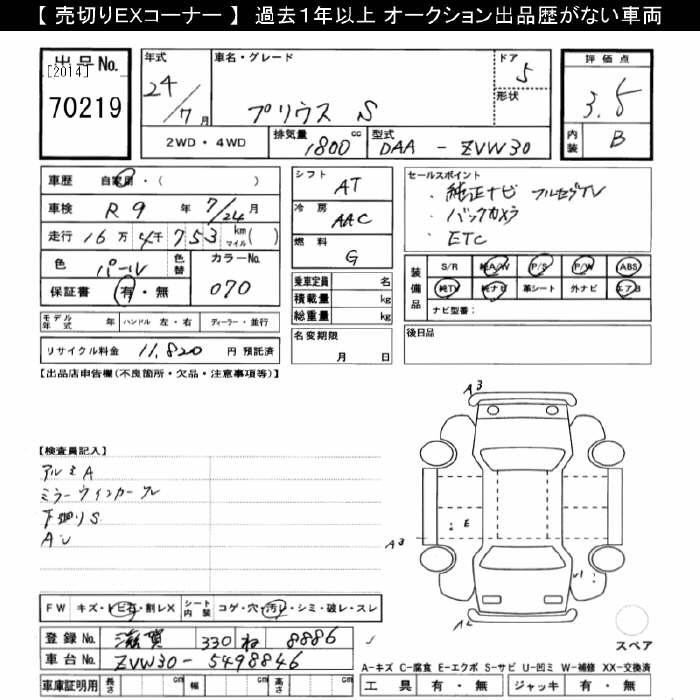 【 売切りEXコーナー 】 過去１年以上 オークション出品歴がない車両
出品No.
[2014]
70219
年式
24/7月
車名・グレード
プリウス S
ドア
5
形状
評価点
3.5
内装
B
2WD・4WD
排気量
1800 cc
型式
DAA - ZVW30
車歴 自家用・( )
車検 R9年 7/24月
走行 16万4千753 km マイル( )
色 パール
色替
カラーNo.
070
保証書 有・無
シフト
AT
冷房
AAC
燃料
G
乗車定員 名
積載量 kg
総重量 kg
名変期限
月 日
セールスポイント
・純正ナビ フルセグTV
・バックカメラ
・ETC
装備品
S/R 純A/W P/S P/W ABS
純TV 純ナビ 革シート 外ナビ エアB
ナビ型番:
後日品
モデル年式 年 ハンドル 左・右 ディーラー・並行
リサイクル料金 11,820 円 預託済
【出品店申告欄(不良箇所・欠品・注意事項等)】
【検査員記入】
アルミA
ミラーウインカーワレ
下廻りS
A・U
A3
A3
E
A2
FW キズ・トビ石・割レX シート内装 コゲ・穴・汚レ・シミ・破レ・スレ
登録No. 滋賀 330 ね 8886
車台No. ZVW30-5498846
車庫証明用 長さ cm 幅 cm 高さ cm
スペア
A-キズ C-腐食 E-エクボ S-サビ U-凹ミ W-補修 XX-交換済
工具 有・無 ジャッキ 有・無